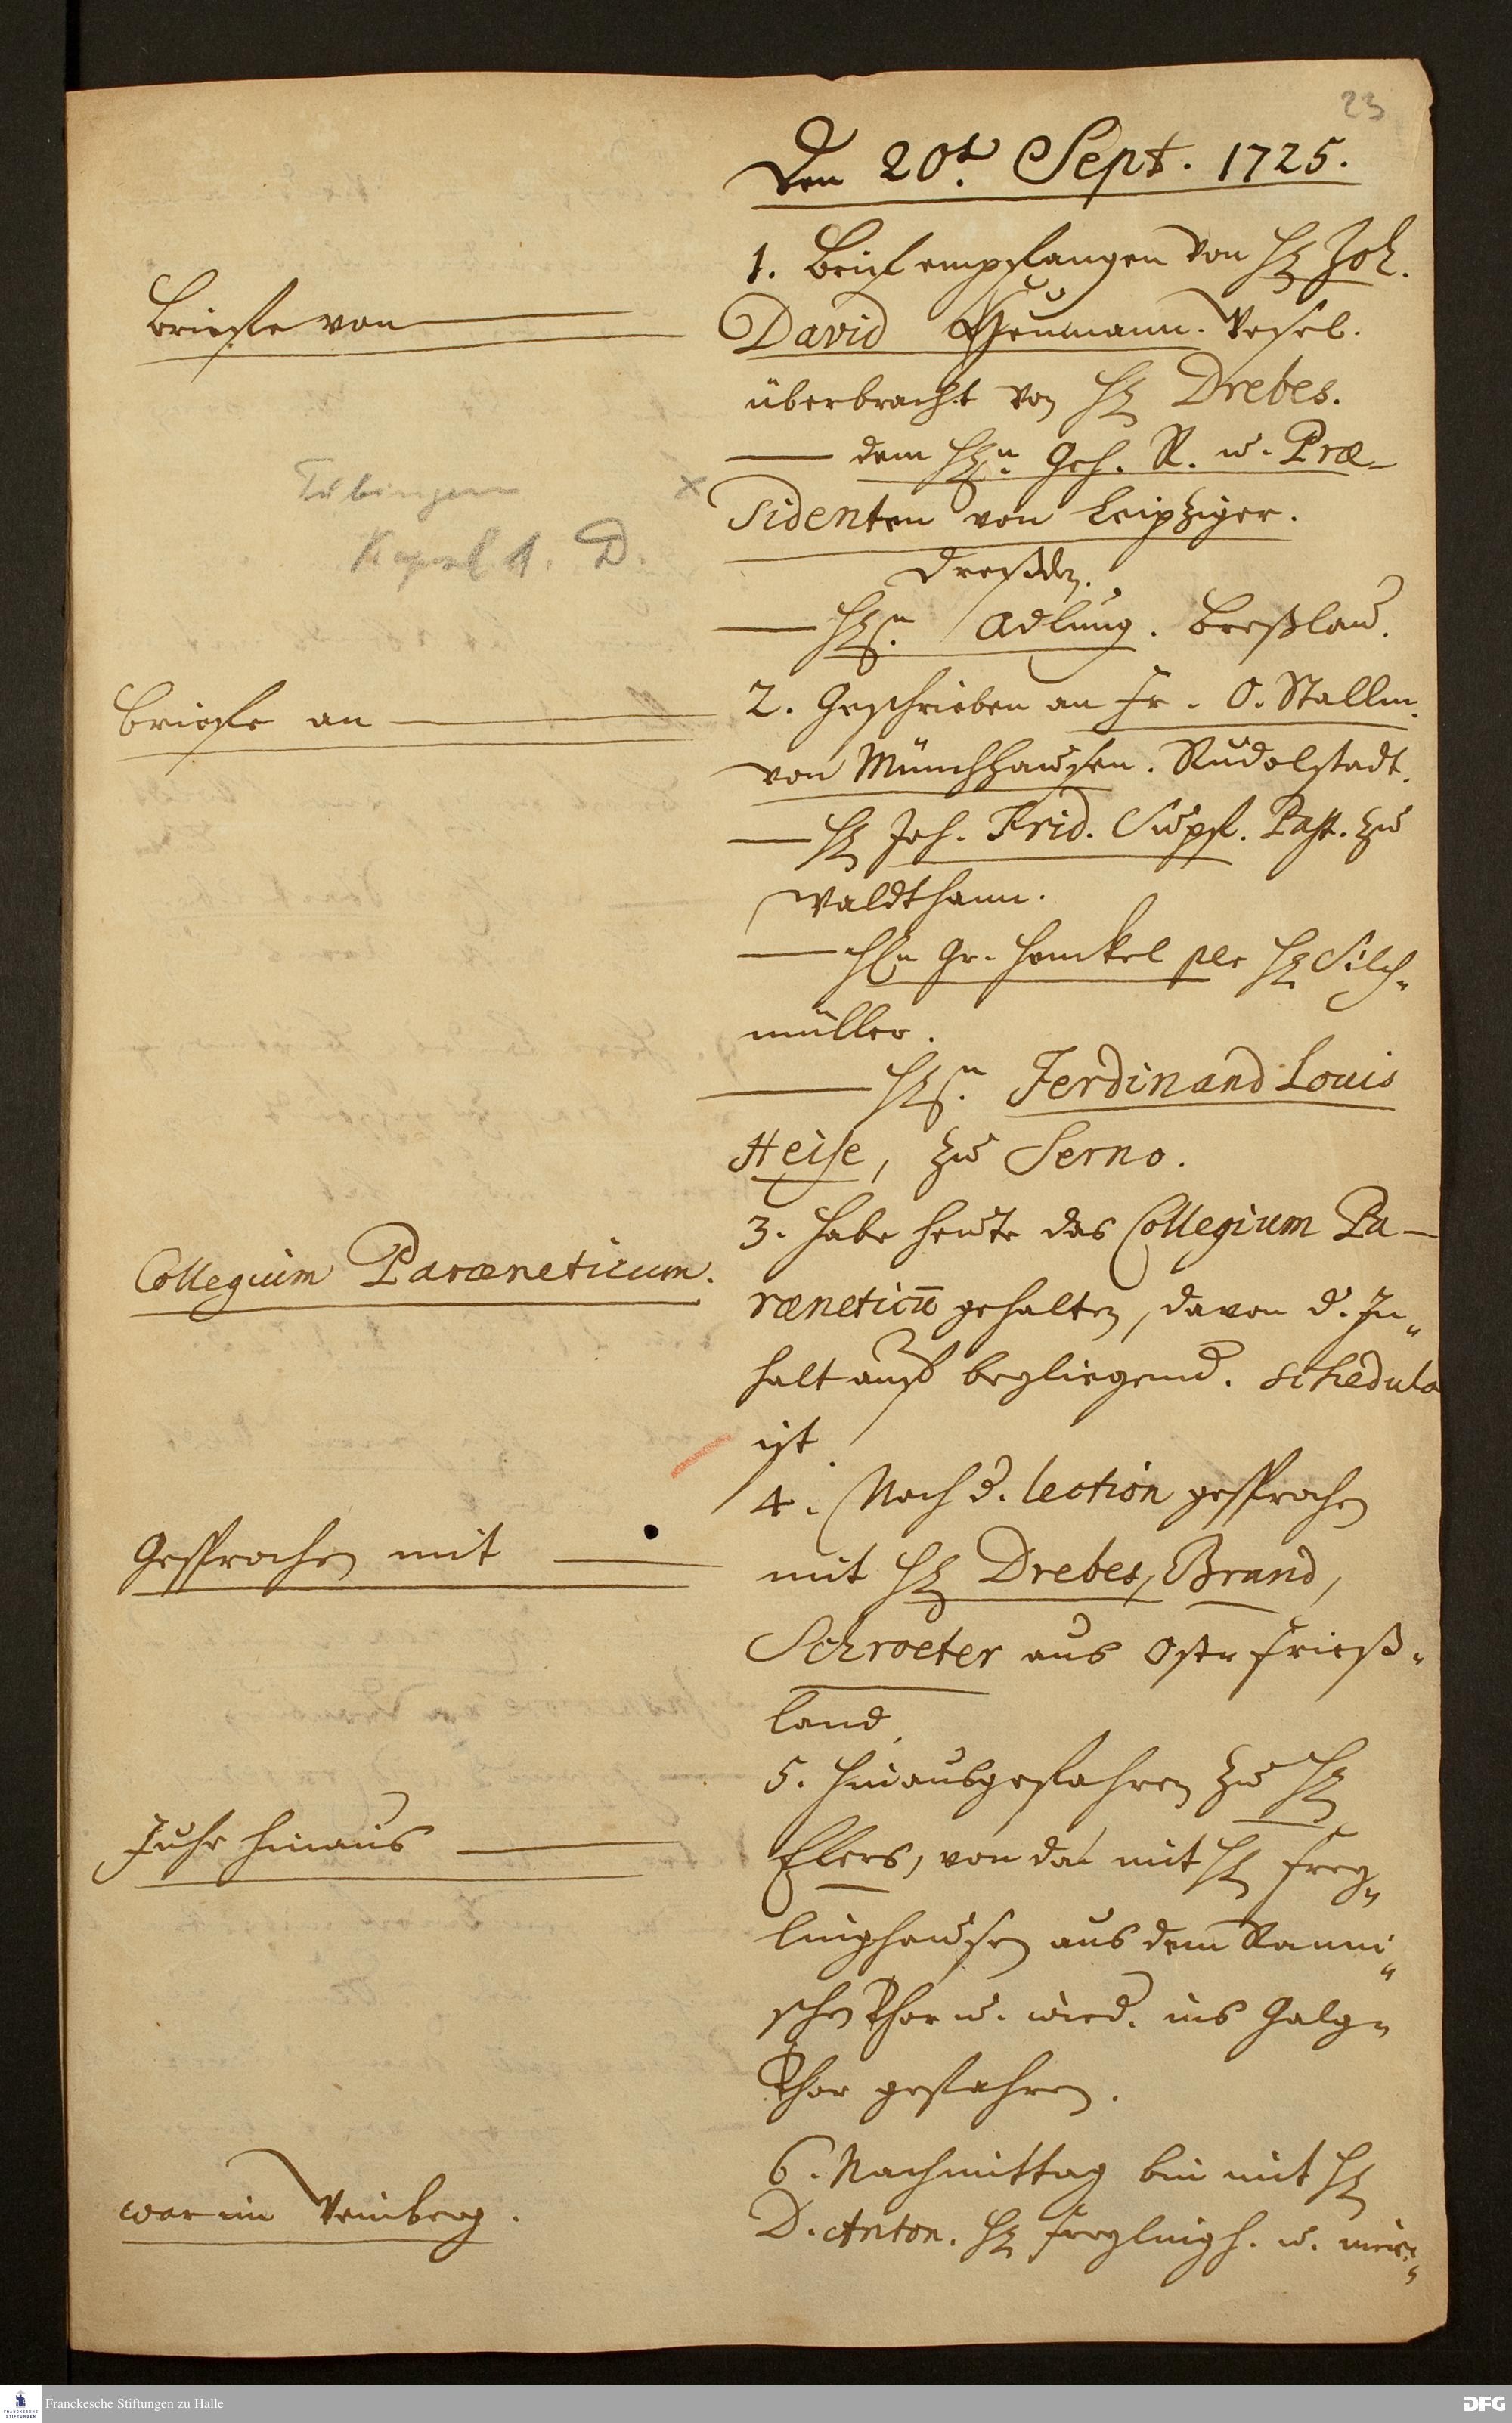 23
Den 20t. Sept. 1725.
1. Brief empfangen von H. Joh.
Brieffe von
David Heumann. Wesel.
überbracht von H. Drebes.
dem H.n Geh. R. u. Præ-
Tübingen
Kapsel 1. D.
sidenten von Leipziger.
Dreßden.
H.n Adlung. Breßlau.
Brieffe an
2. Geschrieben an Fr. O. Stallm.
von Münchhausen. Rudolstadt.
H. Joh. Frid. Past. zu
Waldthann.
Gr. Henckel per H. Silch-
müller.
H.n Ferdinand Louis
Heise, zu Serno.
Collegium Paræneticum.
3. Habe heute das Collegium Pa-
ræneticū gehalten, davon d. In-
halt auß beyliegend. schedula
ist.
Gesprochen mit
4. Nach d. lection gesprochen
mit H. Drebes, Brand,
Schroeter aus Ost-Frieß-
land.
Fuhr hinaus
5. Hinausgefahren zu H.
Elers, von da mit H. Frey-
linghausen aus dem Ranni-
schen Thor u. wied. ins Galg-
Thor gefahren.
war im Weinberg.
6. Nachmittag bin mit H.
D. Anton. H. Freylingh. u. mei-
Franckesche Stiftungen zu Halle
DFG